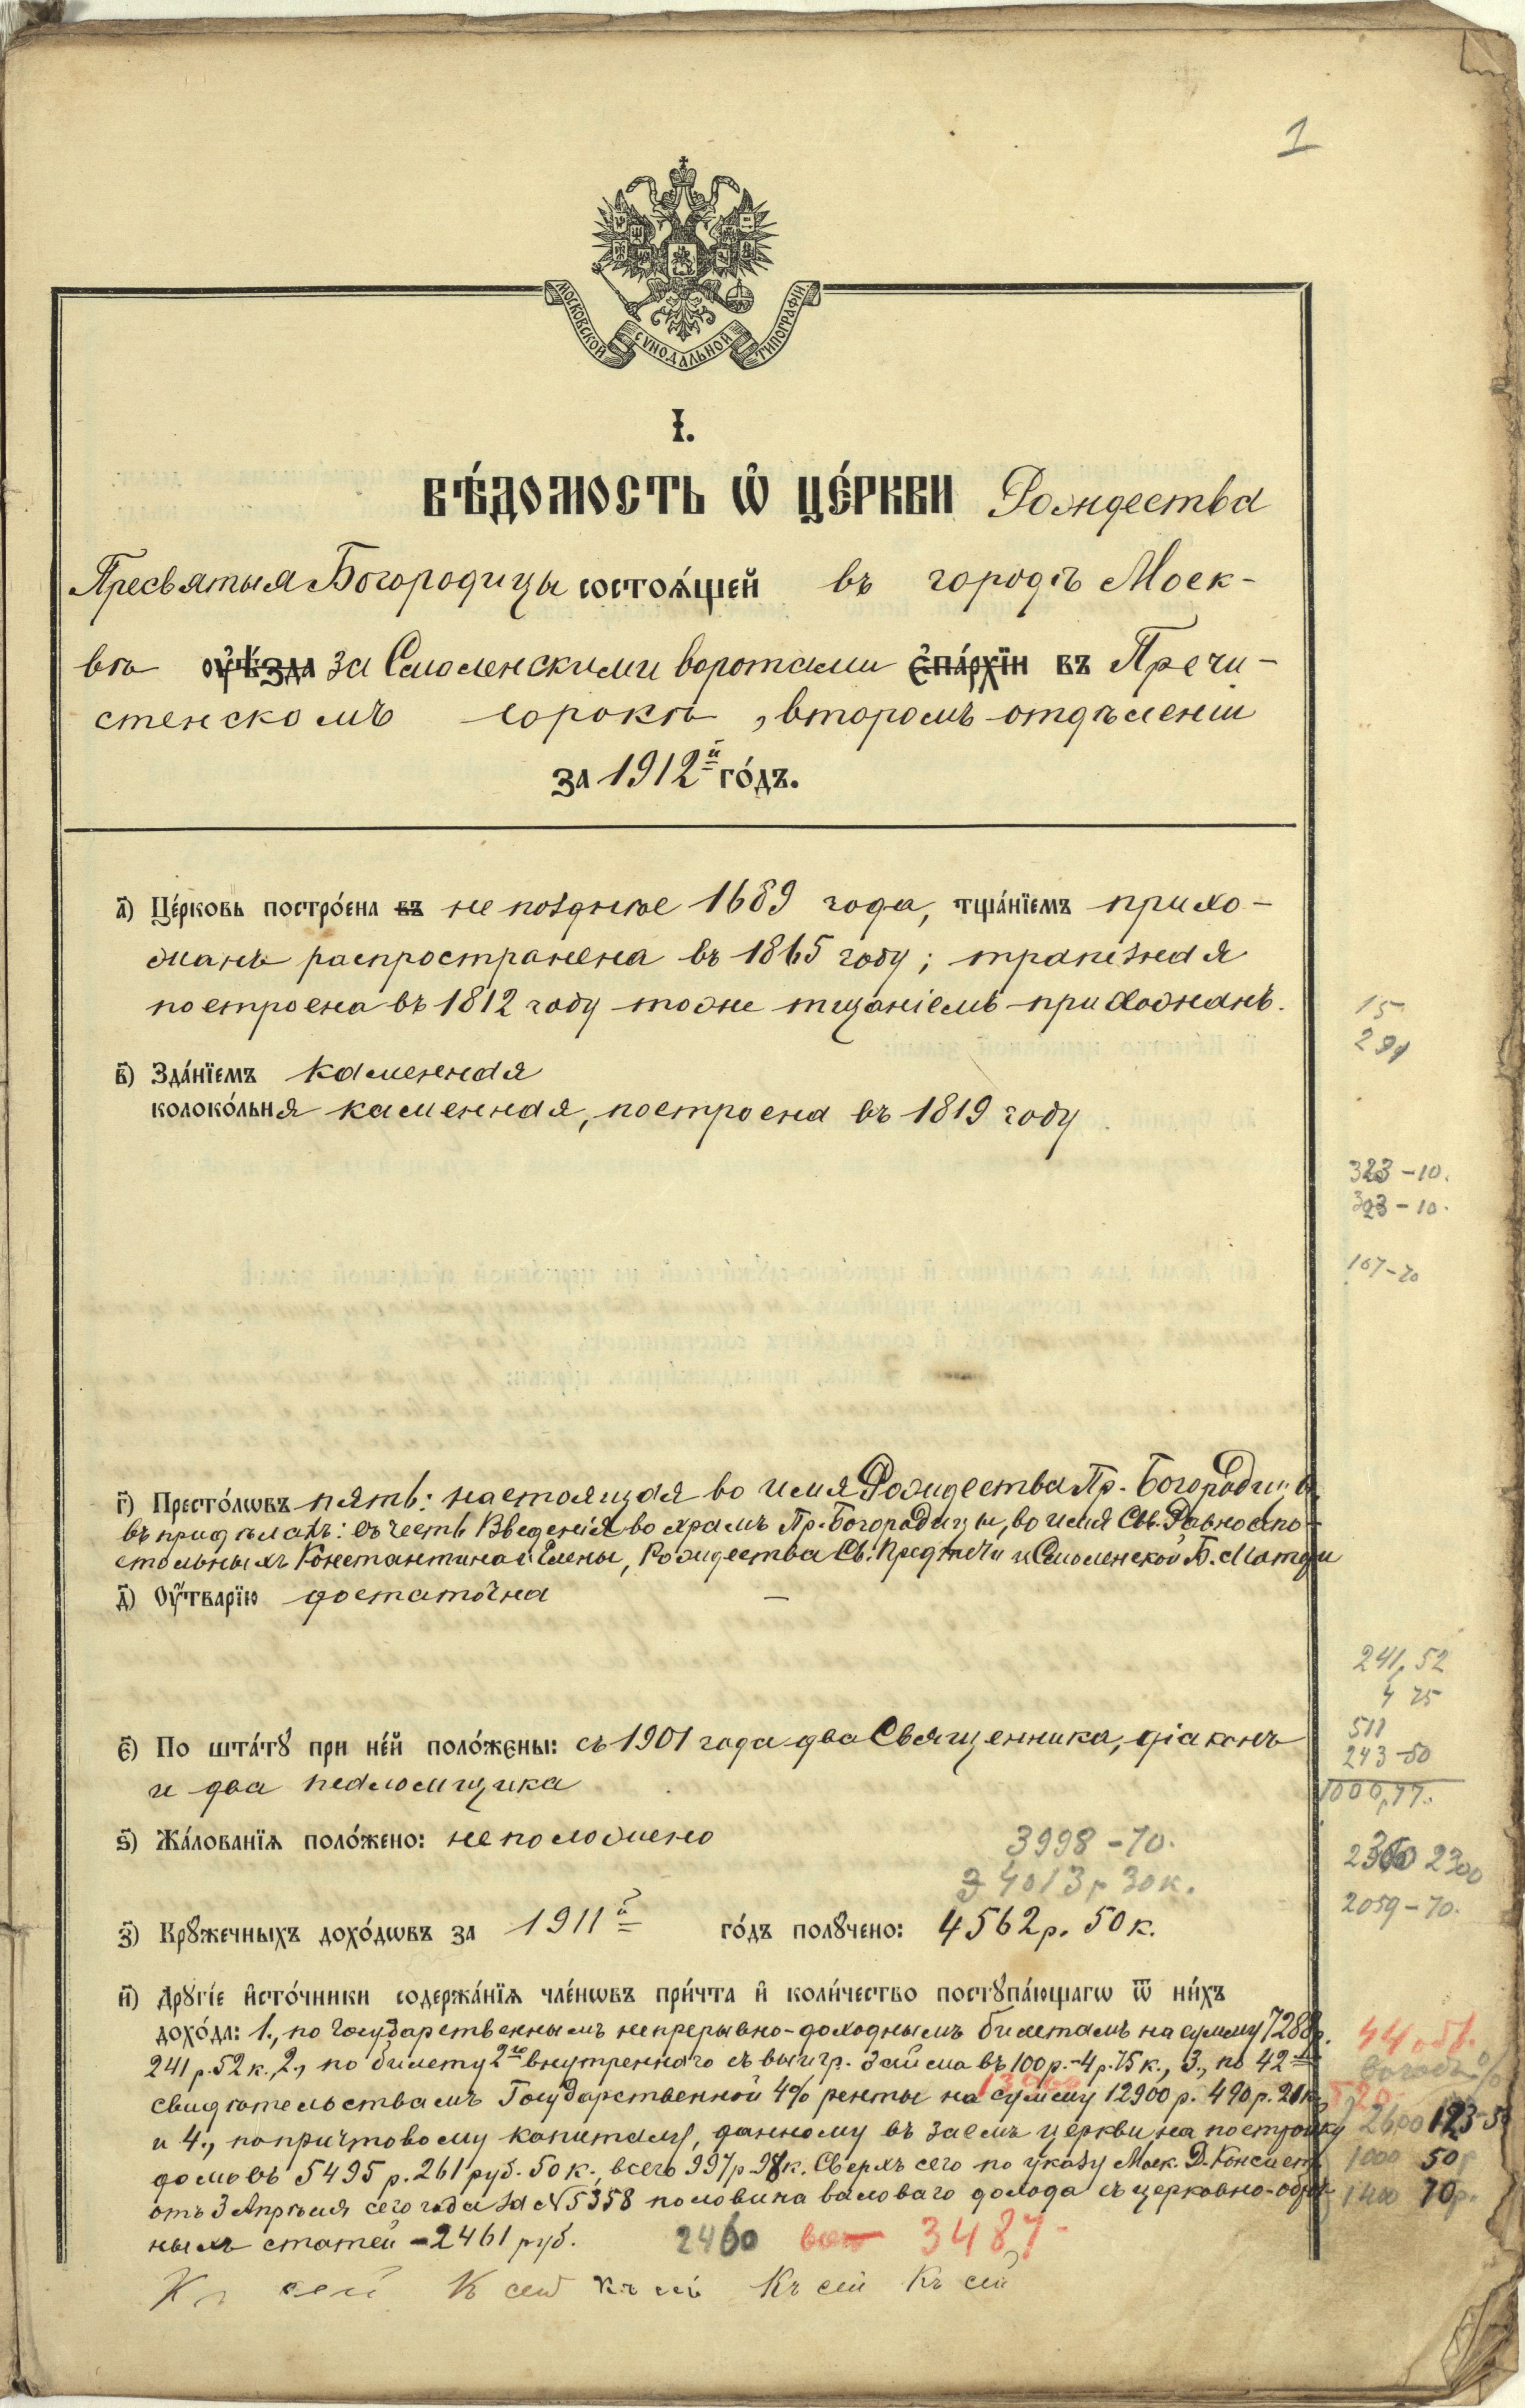 1
МОСКОВСКОЙ СѴНОДАЛЬНОЙ ТИПОГРАФІИ
І.
ВѢ́ДОМОСТЬ Ѡ҆ ЦЕ́РКВИ Рождества
Пресвятыя Богородицы состоѧ́щей въ городѣ Моск-
вѣ оу҆ѣ́зда за Смоленскими воротами є҆па́рхїи въ Пречи-
стенскомъ сорокѣ, второмъ отдѣленіи
за 1912й го́дъ.
а҃) Це́рковь постро́ена въ не позднѣе 1689 года, тща́нїемъ прихо-
жанъ распространена въ 1865 году; трапезная
построена въ 1812 году тоже тщаніемъ прихожанъ.
15
291
в҃) Зда́нїемъ каменная
колоко́льнѧ каменная, построена въ 1819 году.
323-10.
323-10.
107-70
г҃) Престо́лѡвъ пять: настоящая во имя Рождества Пр. Богородицы,
въ придѣлахъ: въ честь Введенія во храмъ Пр. Богородицы, во имя Св. Равноапо-
стольныхъ Константина и Елены, Рождества Св. Предтечи и Смоленской Б. Матери
д҃) Оу҆́тварїю достаточна
241,52
4 75
511
243-50
1000,77.
є҃) По шта́тꙋ при не́й поло́жены: съ 1901 года два Священника, діаконъ
и два псаломщика
ѕ҃) Жа́лованїѧ поло́жено: не положено
3998-70.
4013р 30к.
2300
2059-70.
з҃) Крꙋ́жечныхъ дохо́дѡвъ за 1911й го́дъ полꙋчено: 4562р. 50к.
и҃) Дрꙋгі́е и҆сто́чники содержа́нїѧ чле́нѡвъ при́чта и҆ коли́чество постꙋпа́ющагѡ ѿ ни́хъ
дохо́да: 1., по Государственнымъ непрерывно-доходнымъ билетамъ на сумму 7288р.
241р. 52к. 2., по билету 2го внутренняго съ выигр. займа въ 100р.-4р.75к., 3., по 42
свидѣтельствамъ Государственной 4% ренты на сумму 12900р. 490р. 20к.
и 4., по причтовому капиталу, данному въ заемъ церкви на постройку
домовъ 5495р. 261руб. 50к., всего 997р 97к. Сверхъ сего по указу Моск. Д. Консист.
отъ 3 Апрѣля сего года за №5358 половина валового дохода съ церковно-оброч
ныхъ статей -2461руб. 2460 3487-
44 обл.
2600 123-50
1000 50р
1400 70р.
Къ сей К сей Къ сей Къ сей Къ сей